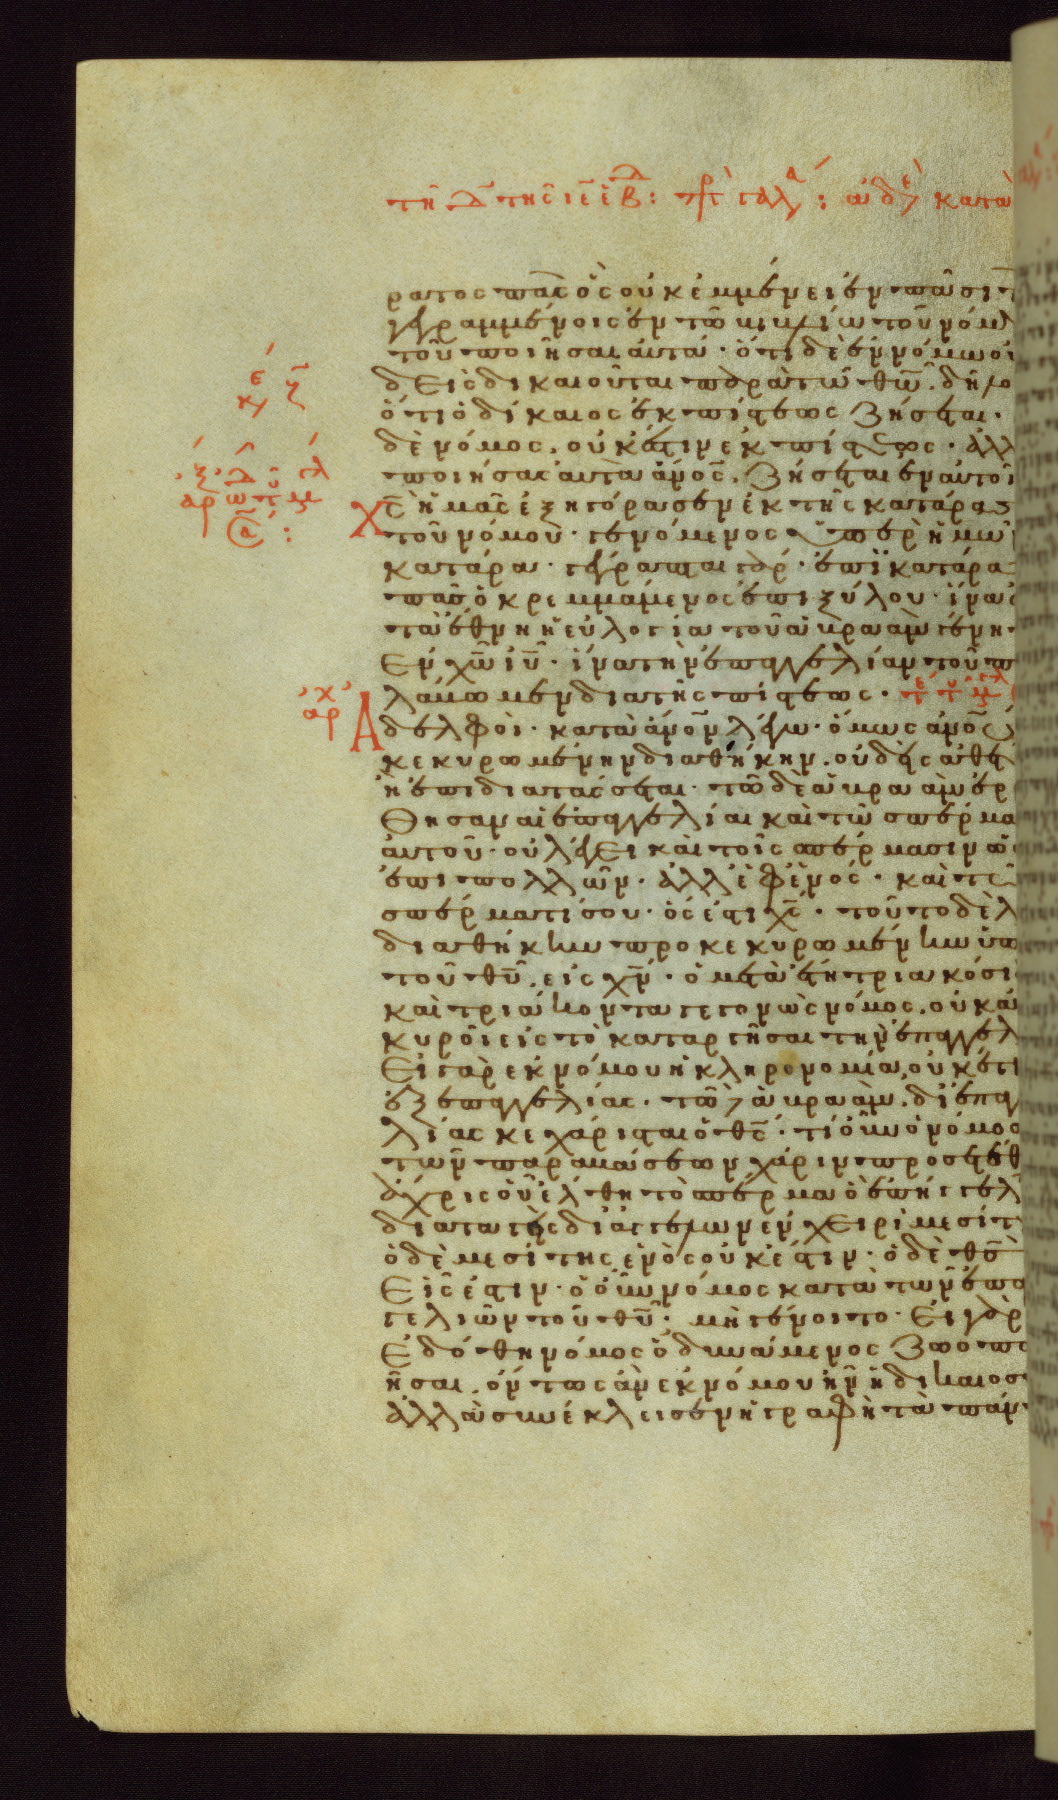 ρατος πᾶς ὃς οὐκ ἐμμένει ἐν πᾶσι τ
γεγραμμένοις ἐν τῶ βιβλίω τοῦ νόμ
τοῦ ποιῆσαι αὐτά· ὅτι δὲ ἐν νόμω οὐ
δεὶς δικαιοῦται παρὰ τῶ θω̅· δῆλο
ὅτι ὁ δίκαιος ἐκ πίστεως ζήσεται·
δὲ νόμος, οὐκ ἔστιν ἐκ πίστεως· ἀλλ
ποιήσας αὐτὰ ἄνο̅ς, ζήσεται ἐν αὐτοῖ
Χ̅ς ἡμᾶς ἐξηγόρασεν ἐκ τῆς κατάρας
τοῦ νόμου· γενόμενος ὑπὲρ ἡμῶ
κατάρα· γέγραπται γάρ· ἐπικατάρα
πᾶς ὁ κρεμμάμενος ἐπι ξύλου· ἵνα
τὰ ἔθνη ἡ εὐλογία τοῦ ἀβραὰμ γένη
ἐν χω̅ ιυ̅· ἵνα τὴν ἐπαγγελίαν τοῦ π
λάβωμεν δια τῆς πίστεως·
Ἀδελφοὶ· κατὰ ἄνο̅ν λέγω· ὅμως ἀνο̅υ
κεκυρωμένην διαθήκην, οὐδεὶς ἀθε
ἢ ἐπιδιατάσσεται· τῶ δὲ ἀβραὰμ ἐρ
θησαν αἱ ἐπαγγελίαι καὶ τῶ σπέρμα
αὐτοῦ· οὐ λέγει καὶ τοῖς σπέρμασιν ὡ
ἐπι πολλῶν· ἀλλ' ἐφ' ἑνός· καὶ τῶ
σπέρματί σου· ὅς ἐστι χ̅ς· τοῦτο δὲ λ
διαθήκην προκεκυρωμένην ὑπ
τοῦ θυ̅, εἰς χν̅· ὁ μετὰ ἔτη τριακόσι
καὶ τριάκοντα γεγονὼς νόμος, οὐκ ἀ
κυροῖ εἰς τὸ καταργῆσαι τὴν ἐπαγγελ
Εἰ γὰρ ἐκ νόμου ἡ κληρονομία, οὐκέτι
ἐξ ἐπαγγελίας· τῶ δὲ ἀβραὰμ, δι' ἐπαγ
λίας κεχάρισται ὁ θ̅ς· τί οὖν ὁ νόμος
τῶν παραβάσεων χάριν προσετέθ
ἄχρις οὗ ἔλθη τὸ σπέρμα ὃ ἐπήγγελ
διαταγεὶς δι' ἀγγέλων ἐν χειρὶ μεσίτ
ὁ δὲ μεσίτης ἑνὸς οὐκ ἔστιν· ὁ δὲ θ̅ς
εἷς ἐστιν· ὁ οὖν νόμος κατὰ τῶν ἐπα
γελιῶν τοῦ θυ̅· μὴ γένοιτο· Εἰ γὰρ
ἐδόθη νόμος ὁ δυνάμενος ζωοπο
ῆσαι, ὄντως ἂν ἐκ νόμου ἦν ἡ δικαιοσ
ἀλλὰ συνέκλεισεν ἡ γραφὴ τὰ πάν